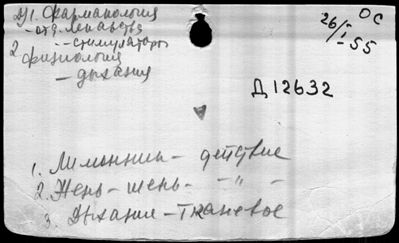 Д1. Фармакология
- отд. лекарства
-- стимуляторы
2 физиология
- дыхания
26/I-55
ОС
Д12632
1. Лимонник - действие
2. Жень-шень - " -
3. Дыхание - тканевое